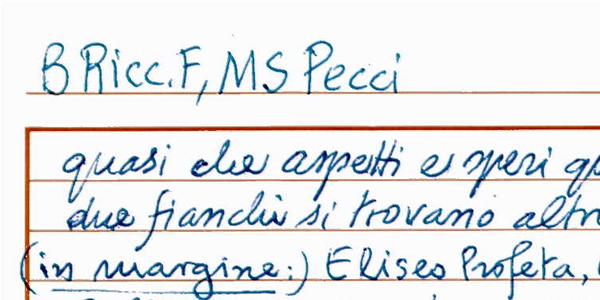 B Ricc. F, MS Pecci
quasi che aspetti e speri
due fianchi si trovano
(in margine:) Eliseo Profeta,